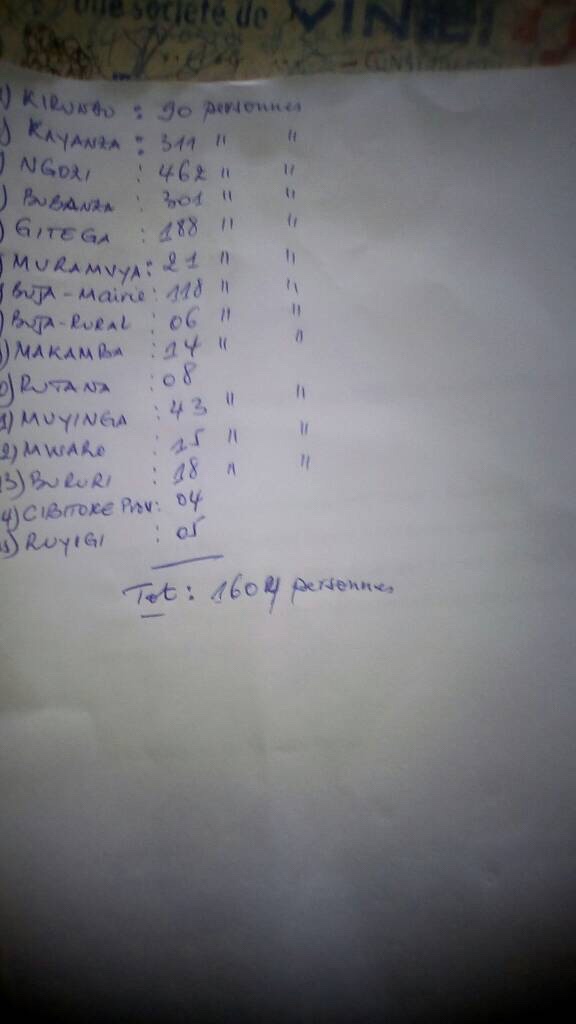 une société de VINCI
1) KIRUNDO : 90 personnes
) KAYANZA : 311 " "
) NGOZI : 462 " "
) BUBANZA : 301 " "
) GITEGA : 188 " "
) MURAMVYA : 21 " "
) BUJA-Mairie : 118 " "
) BUJA-RURAL : 06 " "
) MAKAMBA : 14 " "
0) RUTANA : 08
1) MUYINGA : 43 " "
2) MWARO : 15 " "
13) BURURI : 18 " "
4) CIBITOKE Prov : 04
15) RUYIGI : 05
Tot : 1604 personnes